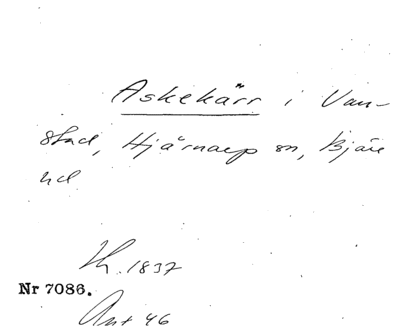 Askekärr i Van-
stad, Hjärnarp sn, Bjäre
hd
Th. 1837
Nr 7086.
Ant 46